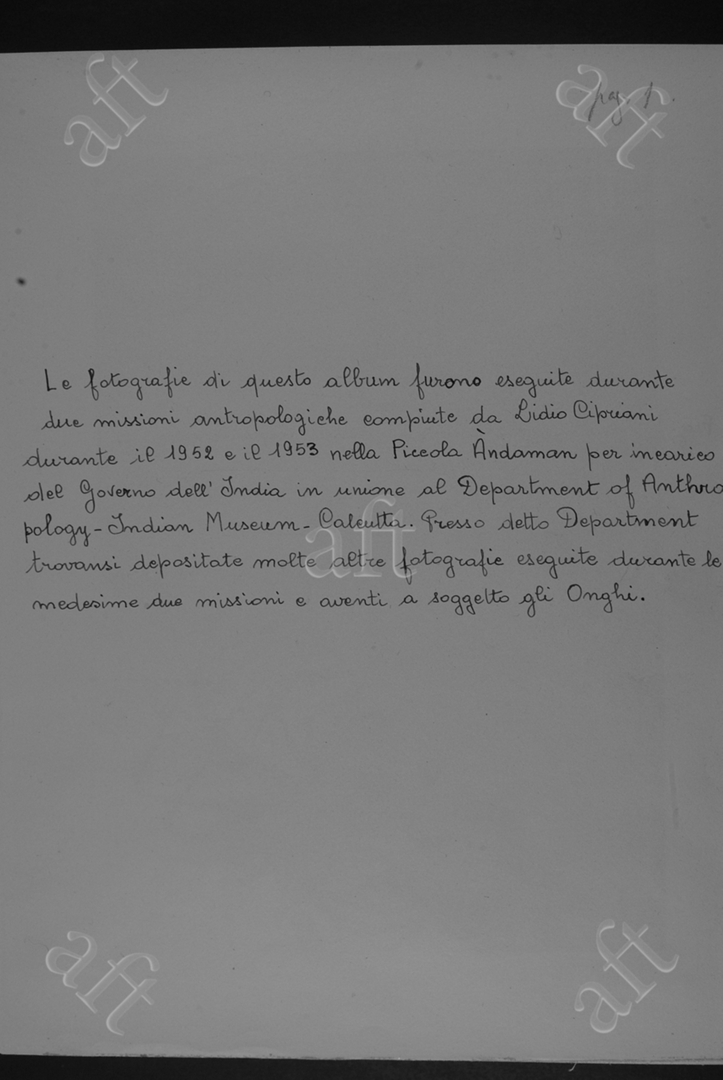 aft
aft
pag. 1.
Le fotografie di questo album furono eseguite durante
due missioni antropologiche compiute da Lidio Cipriani
durante il 1952 e il 1953 nella Piccola Àndaman per incarico
del Governo dell' India in unione al Department of Anthro
pology - Indian Museum - Calcutta. Presso detto Department
trovansi depositate molte altre fotografie eseguite durante le
medesime due missioni e aventi a soggetto gli Onghi.
aft
aft
aft